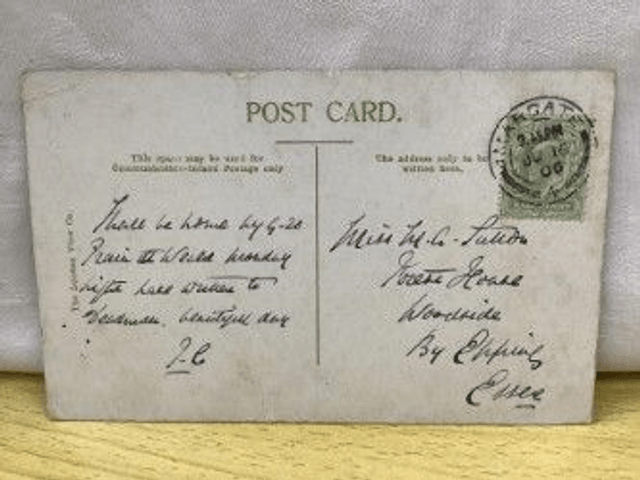 POST CARD.
This space may be used for
Communication Inland Postage only
The address only to be
written here.
MARGATE
JU 16
06
The London View Co.
Shall be home by 9-20
Train at Weald monday
night have written to
Deadman. beautiful day
Miss M. G. Sutton
House
Woodside
By Epping
Essex